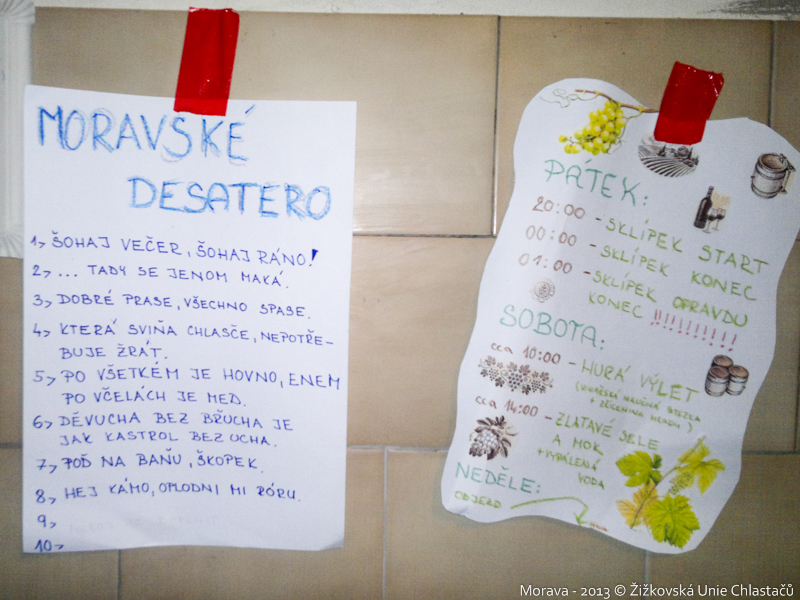 MORAVSKÉ
DESATERO
1, ŠOHAJ VEČER, ŠOHAJ RÁNO!
2, ... TADY SE JENOM MAKÁ.
3, DOBRÉ PRASE, VŠECHNO SPASE.
4, KTERÁ SVIŇA CHLASČE, NEPOTŘE-
BUJE ŽRÁT.
5, PO VŠETKÉM JE HOVNO, ENEM
PO VČELÁCH JE MED.
6, DĚVUCHA BEZ BŘUCHA JE
JAK KASTROL BEZ UCHA.
7, POĎ NA BAŇU, ŠKOPEK.
8, HEJ KÁMO, OPLODNI MI RÓRU.
9,
10,
PÁTEK:
20:00 - SKLÍPEK START
00:00 - SKLÍPEK KONEC
01:00 - SKLÍPEK OPRAVDU
KONEC !!!!!!!!!!
SOBOTA:
cca 10:00 - HURÁ VÝLET
NAUČNÁ STEZKA
+ ZŘÍCENINA HRADU)
cca 14:00 - ZLATAVÉ SELE
A MOK
+ VYPÁLENÁ
VODA
NEDĚLE:
ODJEZD
Morava - 2013 © Žižkovská Unie Chlastačů